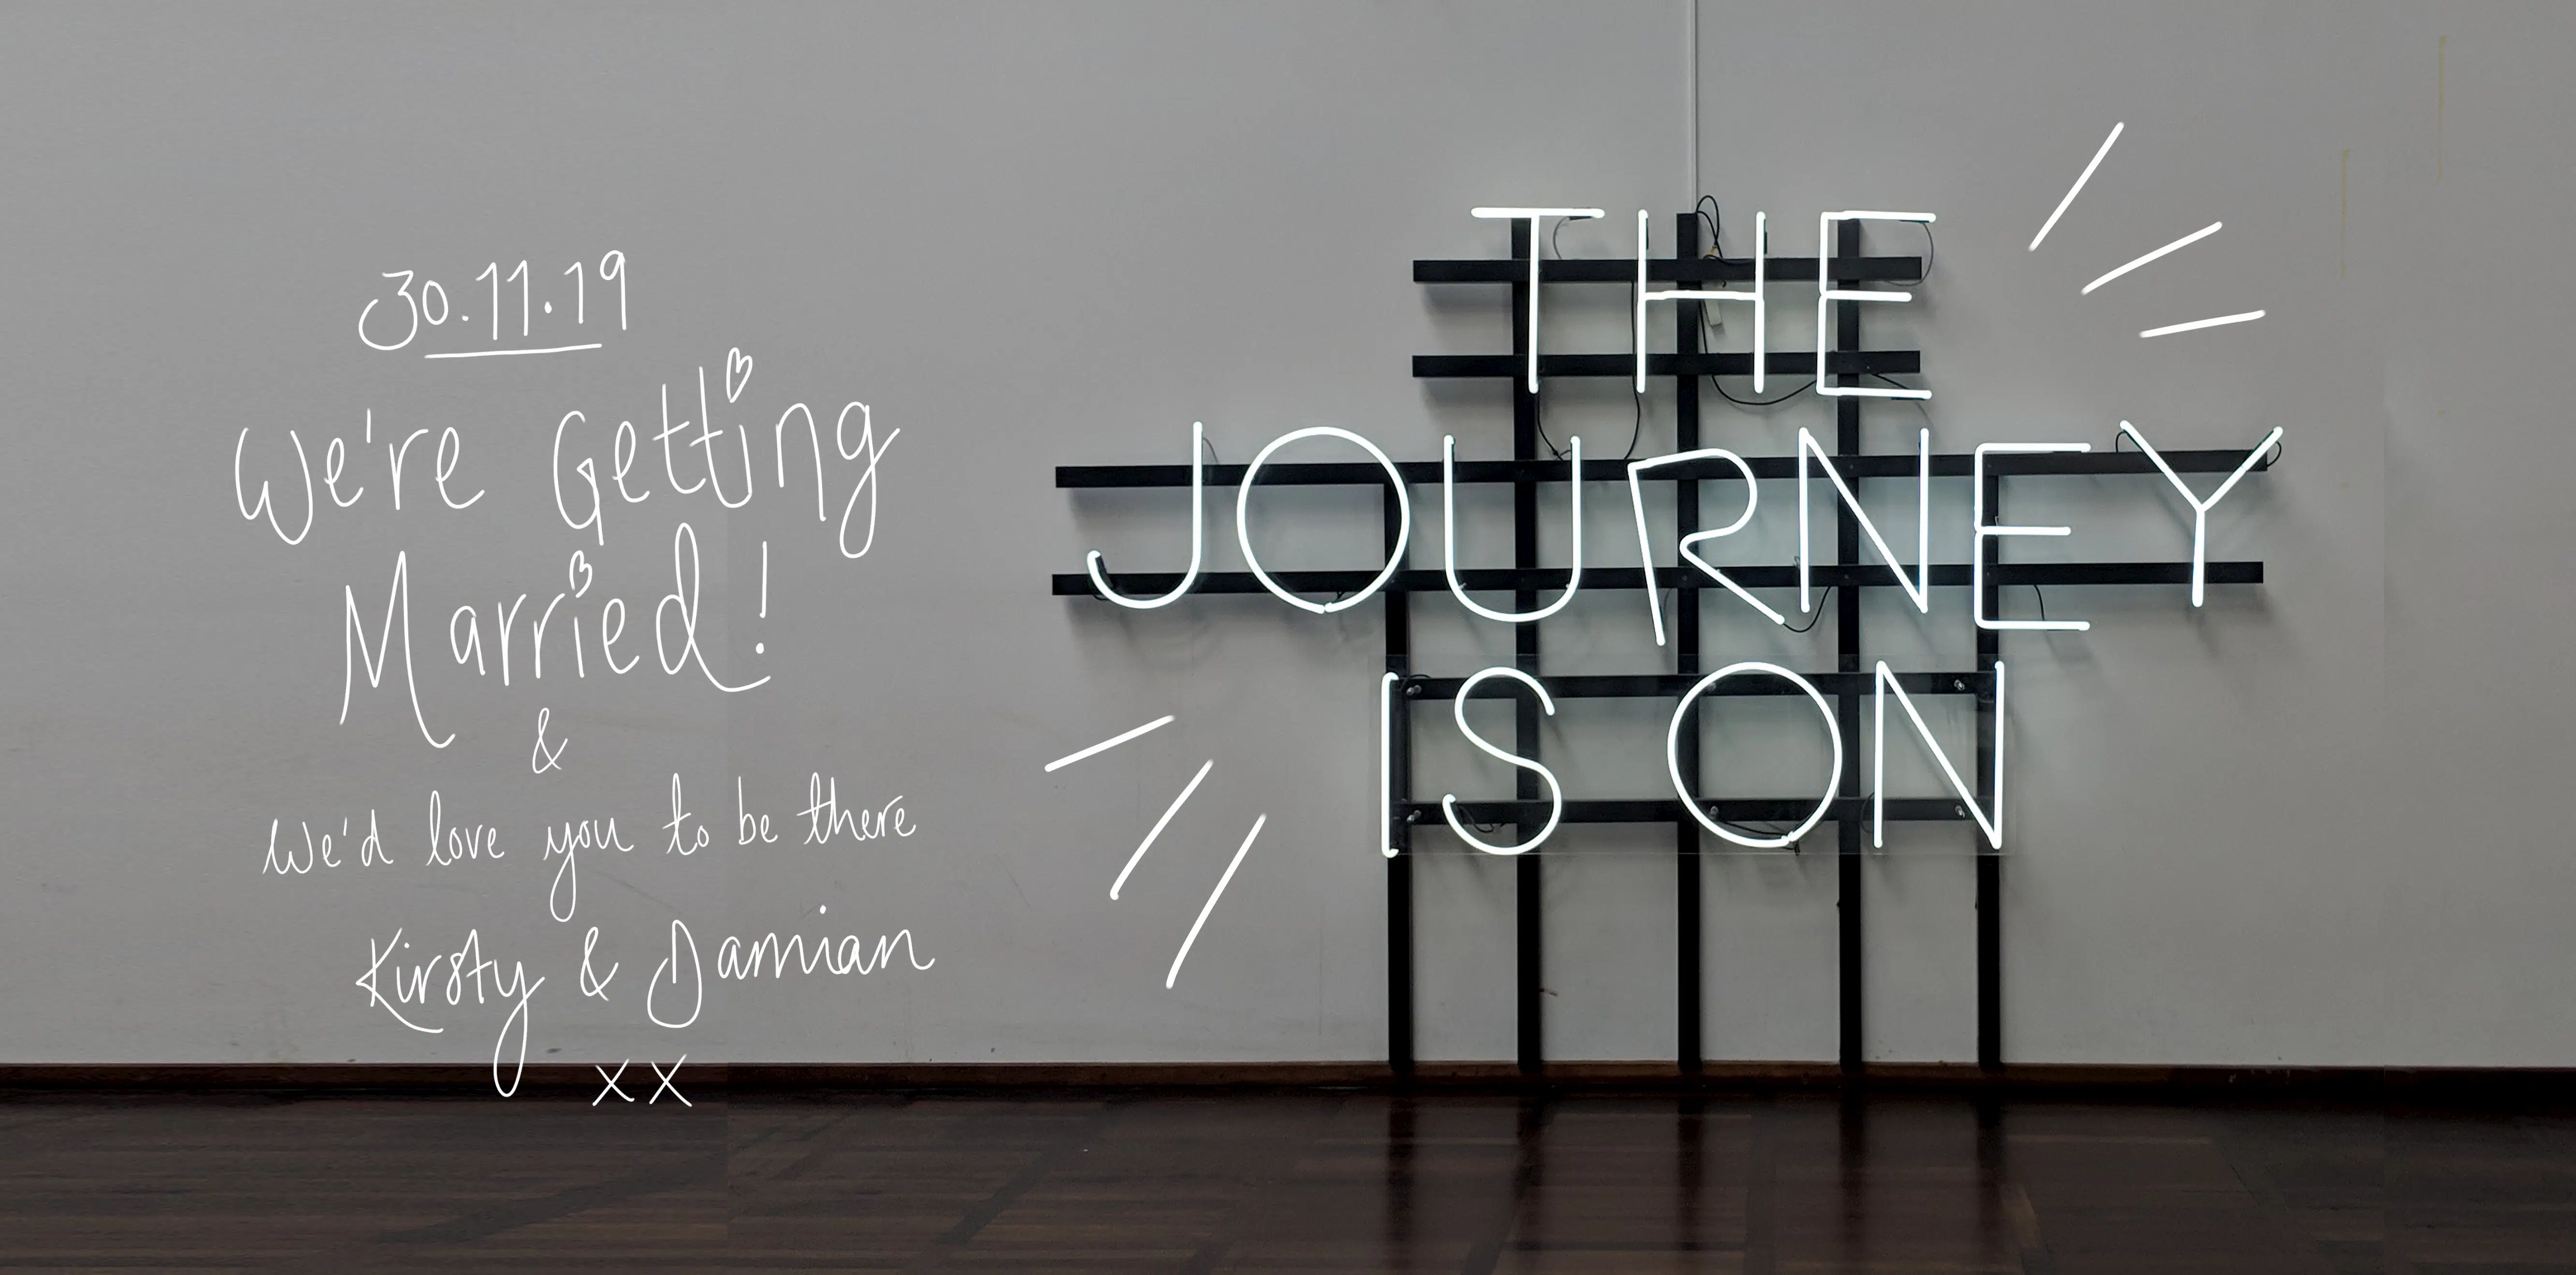 30.11.19
We're Getting
Married!
&
We'd love you to be there
Kirsty & Damian
xx
THE
JOURNEY
IS ON